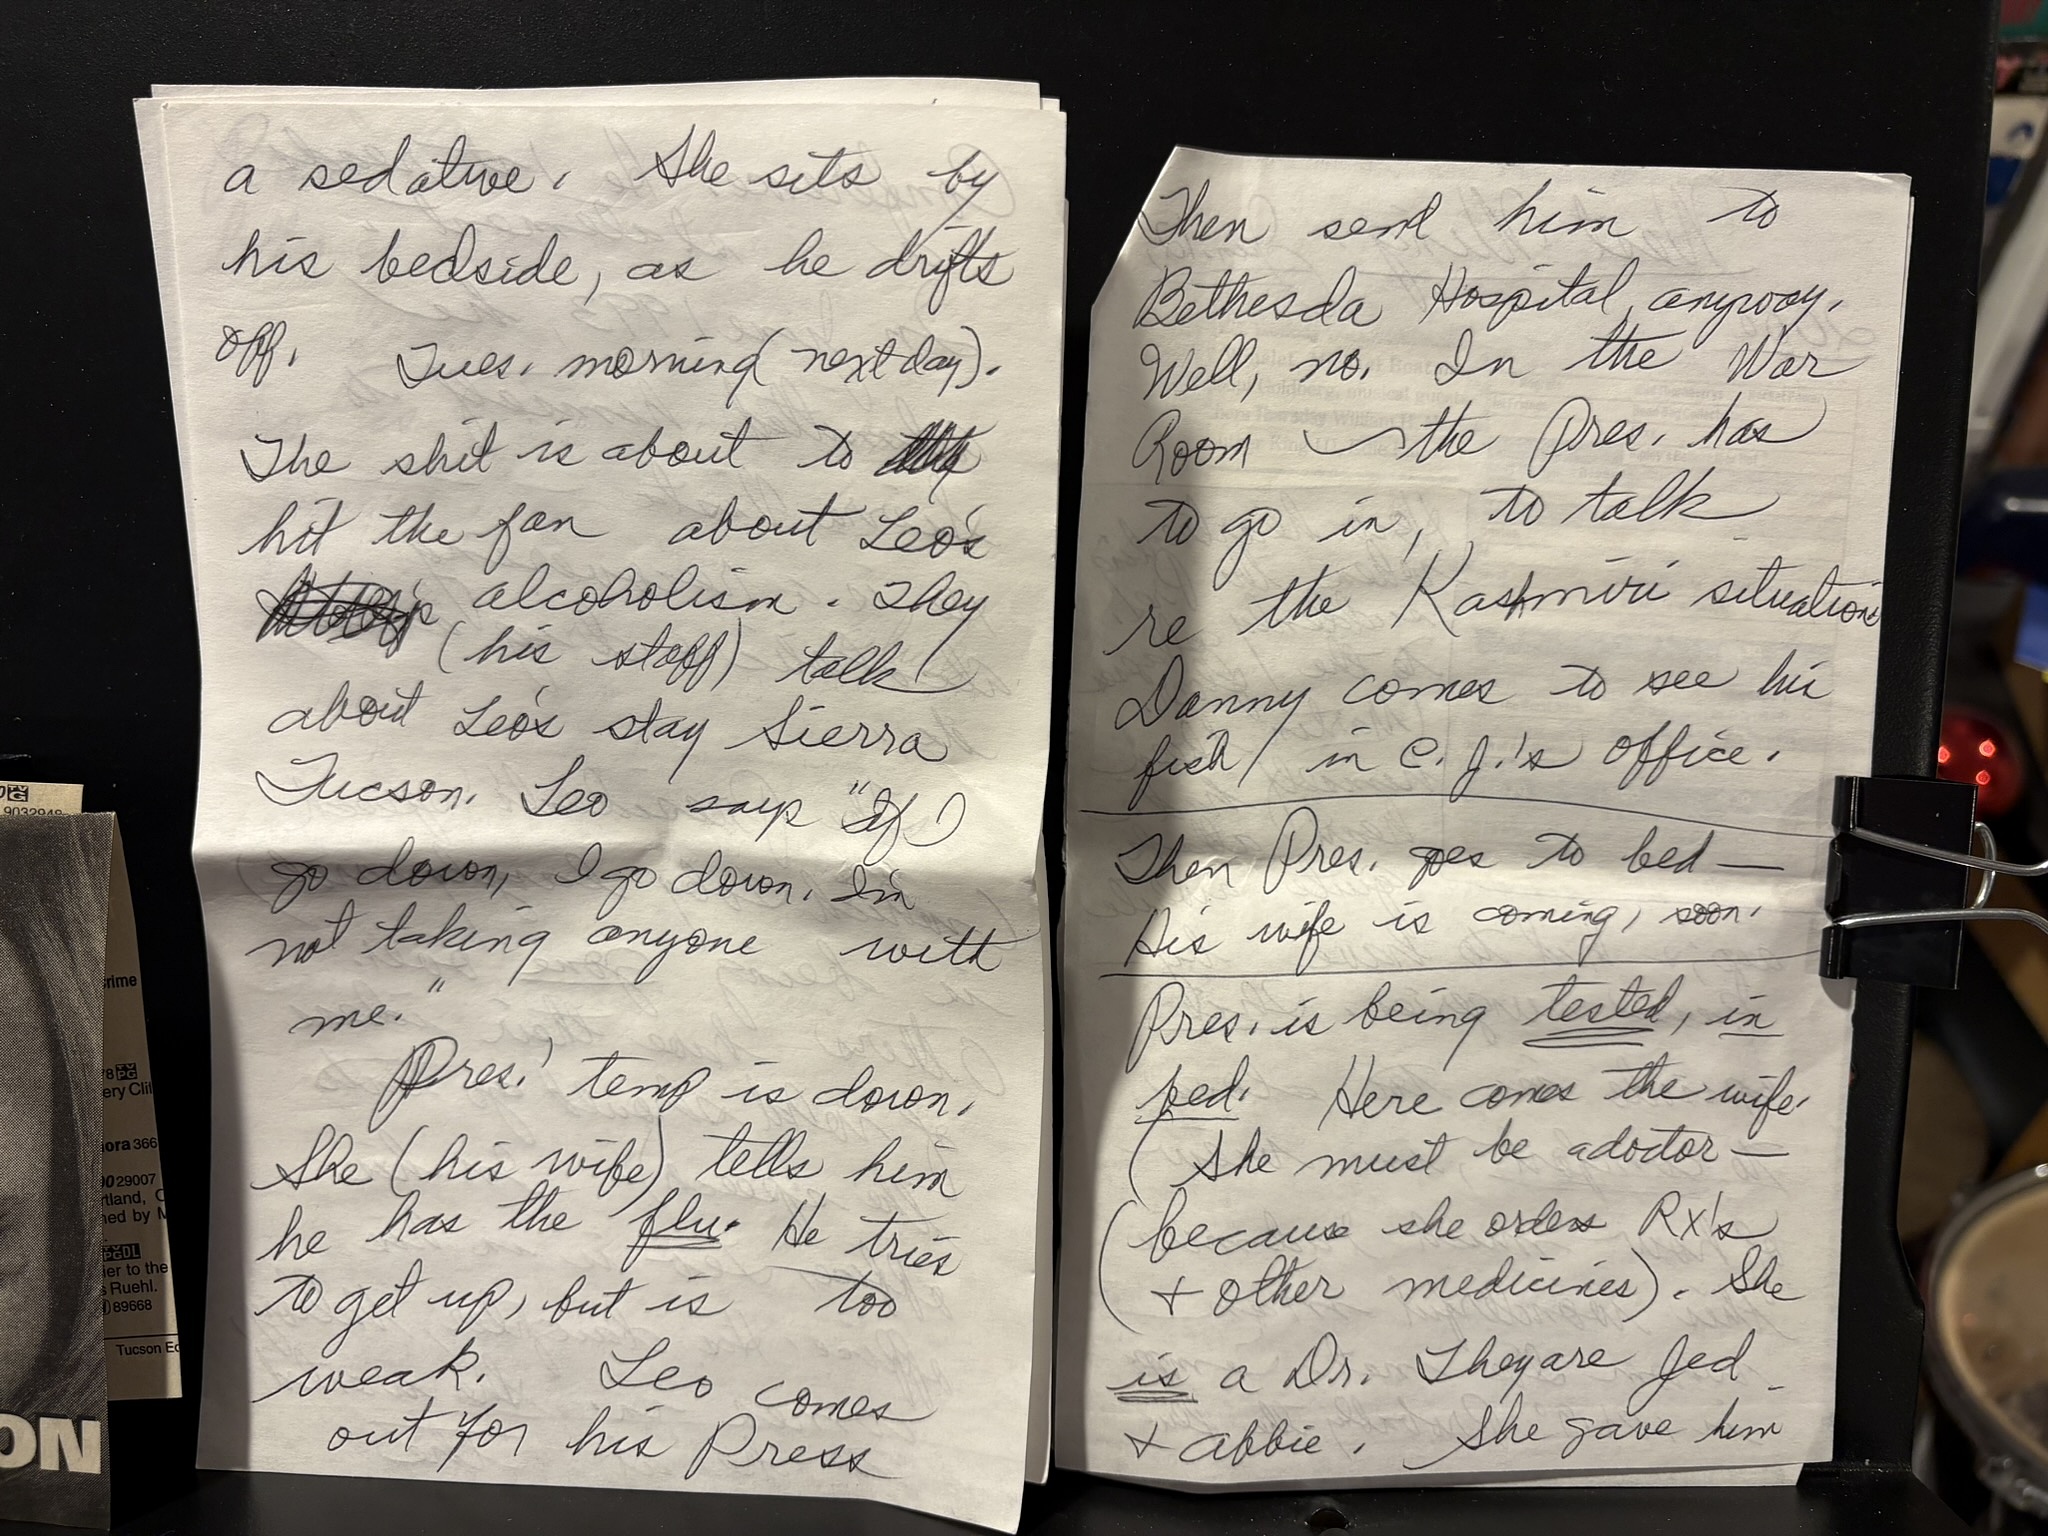 a sedative. She sits by
his bedside, as he drifts
off. Tues. morning (next day).
The shit is about to
hit the fan about Leo's
alcoholism. They
(his staff) talk
about Leo's stay Sierra
Tucson. Leo says "If I
go down, I go down. I'm
not taking anyone with
me."
Pres.' temp is down.
She (his wife) tells him
he has the flu. He tries
to get up, but is too
weak. Leo comes
out for his Press
Then send him to
Bethesda Hospital, anyway.
Well, no. In the War
Room the Pres. has
to go in, to talk
re the Kashmiri situation
Danny comes to see his
fish / in C. J.'s office.
Then Pres. goes to bed —
His wife is coming, soon.
Pres. is being tested, in
bed. Here comes the wife.
(She must be a doctor —
(because she orders Rx's
+ other medicines). She
is a Dr. They are Jed
+ Abbie. She gave him
9032948
rime
78 TV PG
ery Cli
ora 366
29007
rtland, O
ned by M
TV PG DL
ier to the
s Ruehl.
89668
Tucson Ed
ON